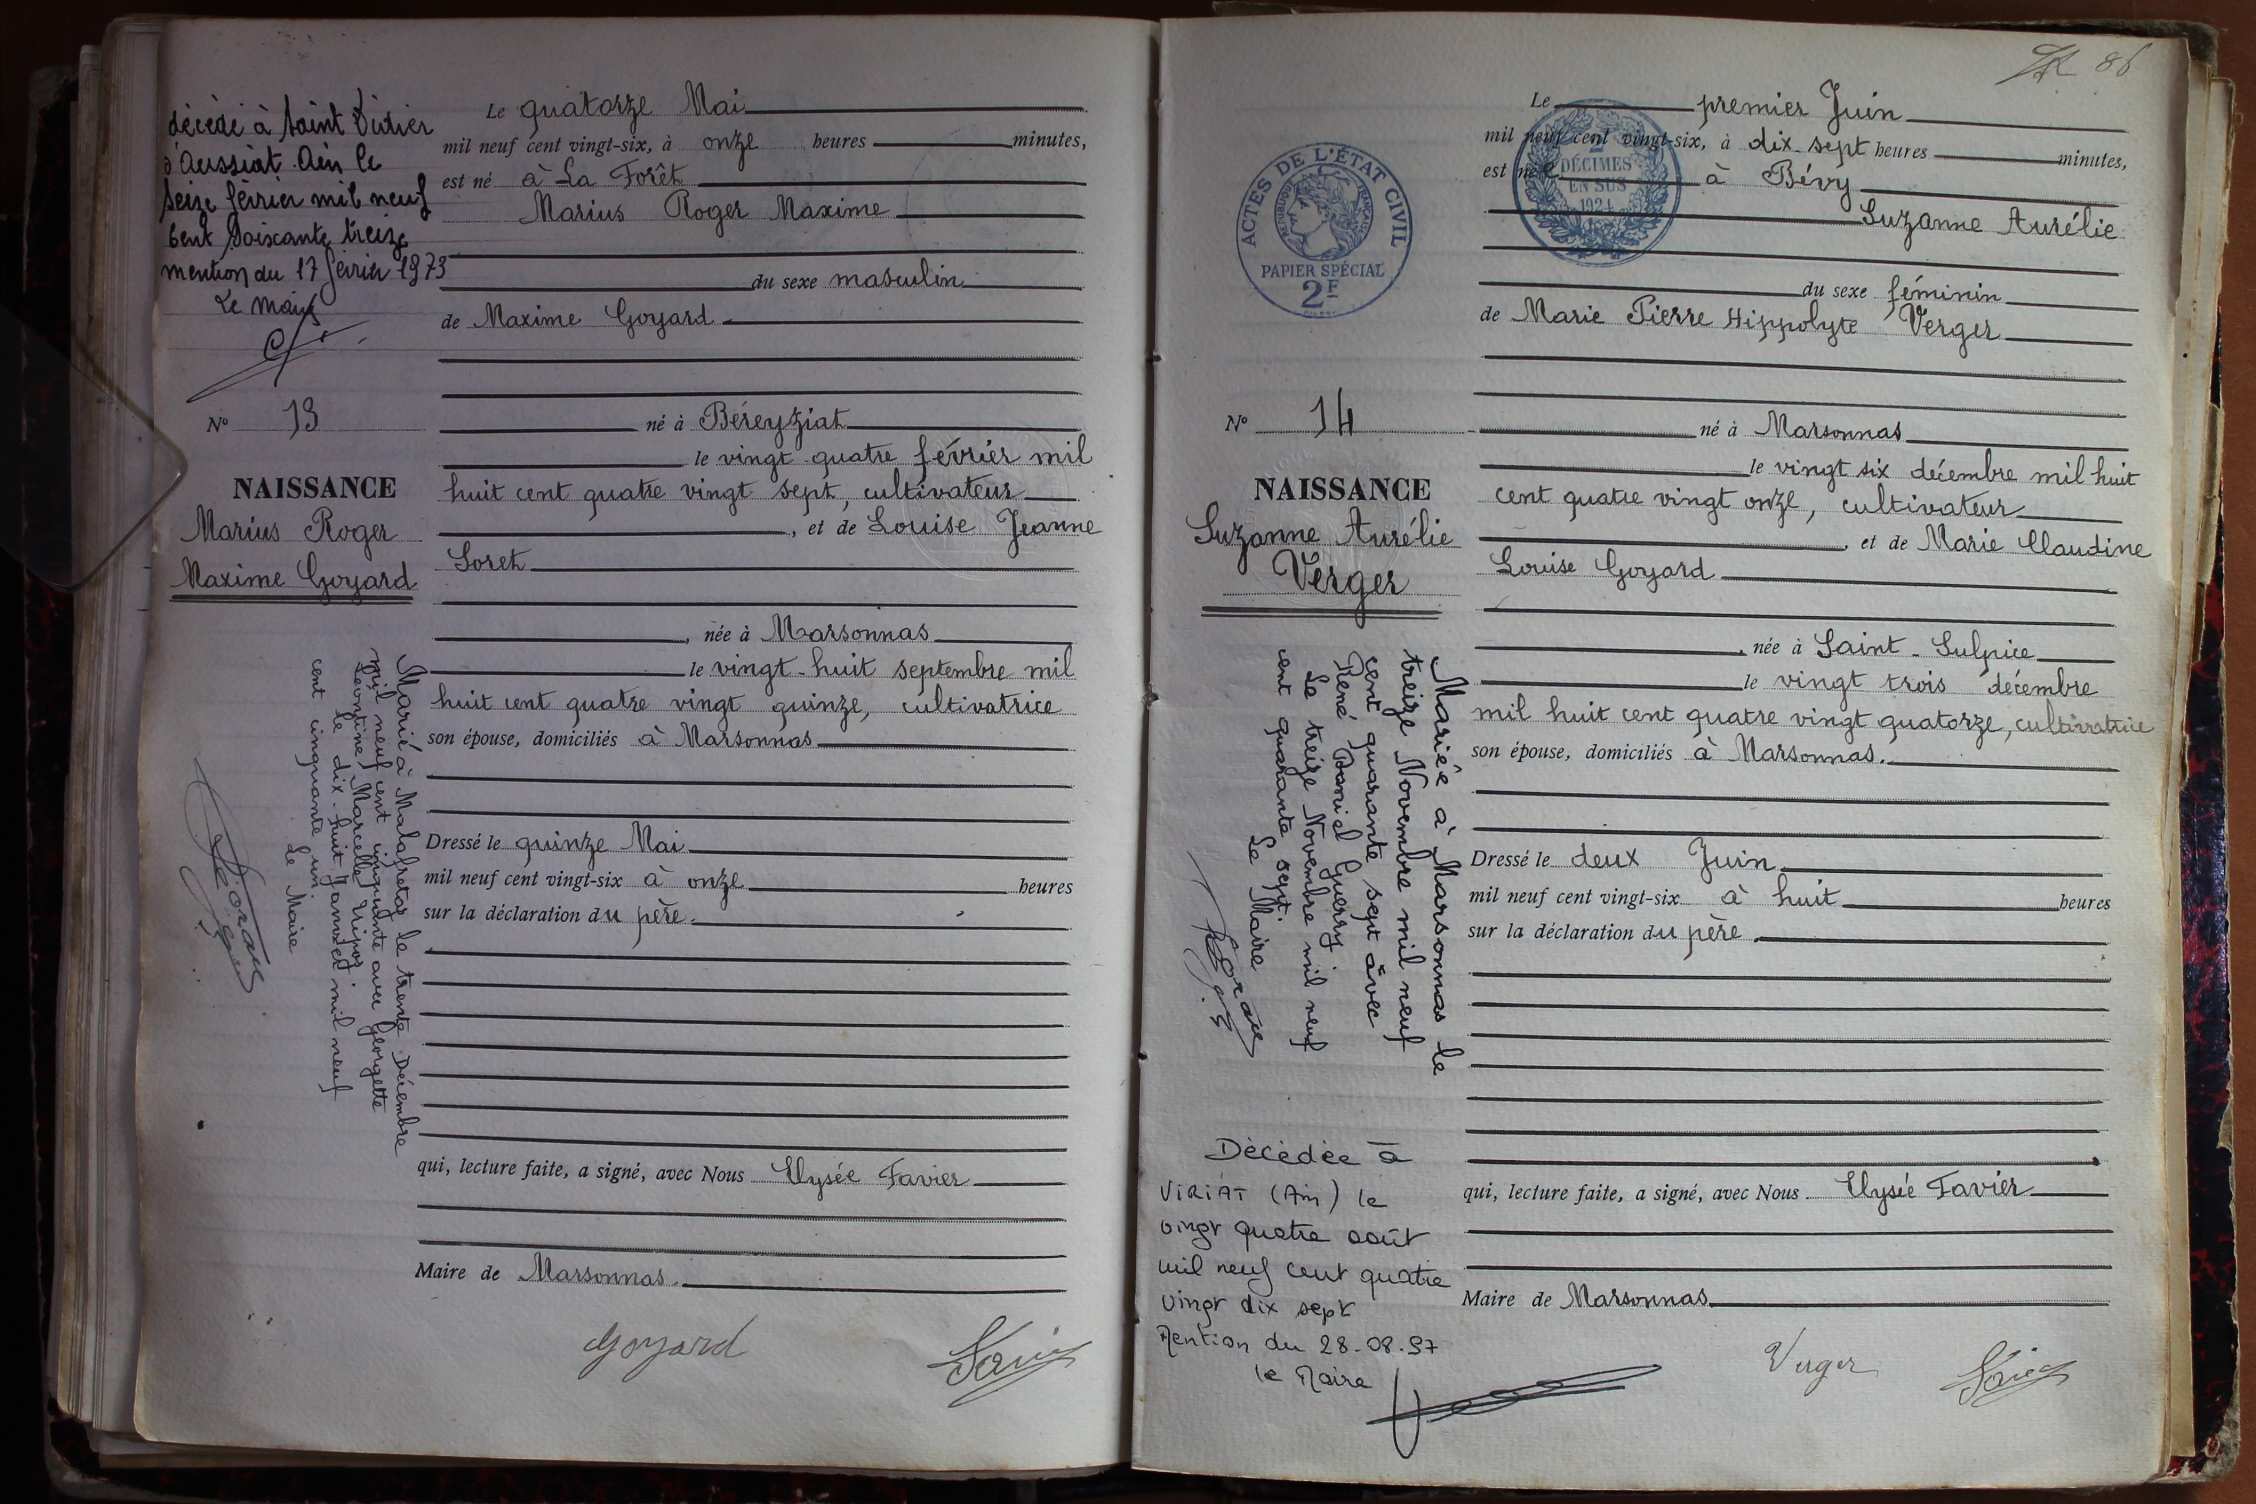 décédé à Saint Didier
d'Aussiat Ain le
seize février mil neuf
cent soixante treize
mention du 17 février 1973
Le Maire
N° 13
NAISSANCE
Marius Roger
Maxime Goyard
Marié à Malafretaz le trente Décembre
mil neuf cent cinquante avec Georgette
Léontine Marcelle
le dix-huit Janvier mil neuf
cent cinquante un
Le Maire
Le quatorze Mai
mil neuf cent vingt-six, à onze heures minutes,
est né à La Forêt
Marius Roger Maxime
du sexe masculin
de Maxime Goyard
né à Béreyziat
le vingt quatre février mil
huit cent quatre vingt sept, cultivateur
, et de Louise Jeanne
Soret
, née à Marsonnas
le vingt-huit septembre mil
huit cent quatre vingt quinze, cultivatrice
son épouse, domiciliés à Marsonnas
Dressé le quinze Mai
mil neuf cent vingt-six à onze heures
sur la déclaration du père.
qui, lecture faite, a signé, avec Nous Elysée Favier
Maire de Marsonnas.
Goyard
86
ACTES DE L'ÉTAT CIVIL
RÉPUBLIQUE FRANÇAISE
PAPIER SPÉCIAL
2F
2
DÉCIMES
EN SUS
1924
N° 14
NAISSANCE
Suzanne Aurélie
Verger
Mariée à Marsonnas le
treize Novembre mil neuf
cent quarante sept avec
René Daniel Guerry.
Le treize Novembre mil neuf
cent quarante sept.
Le Maire
Décédée à
VIRIAT (Ain) le
vingt quatre août
mil neuf cent quatre
vingt dix sept
Mention du 28.08.97
le Maire
Le premier Juin
mil neuf cent vingt-six, à dix-sept heures minutes,
est née à Bévy
Suzanne Aurélie
du sexe féminin
de Marie Pierre Hippolyte Verger
né à Marsonnas
le vingt six décembre mil huit
cent quatre vingt onze, cultivateur
, et de Marie Claudine
Louise Goyard
, née à Saint-Sulpice
le vingt trois décembre
mil huit cent quatre vingt quatorze, cultivatrice
son épouse, domiciliés à Marsonnas.
Dressé le deux Juin
mil neuf cent vingt-six à huit heures
sur la déclaration du père.
qui, lecture faite, a signé, avec Nous Elysée Favier
Maire de Marsonnas
Verger